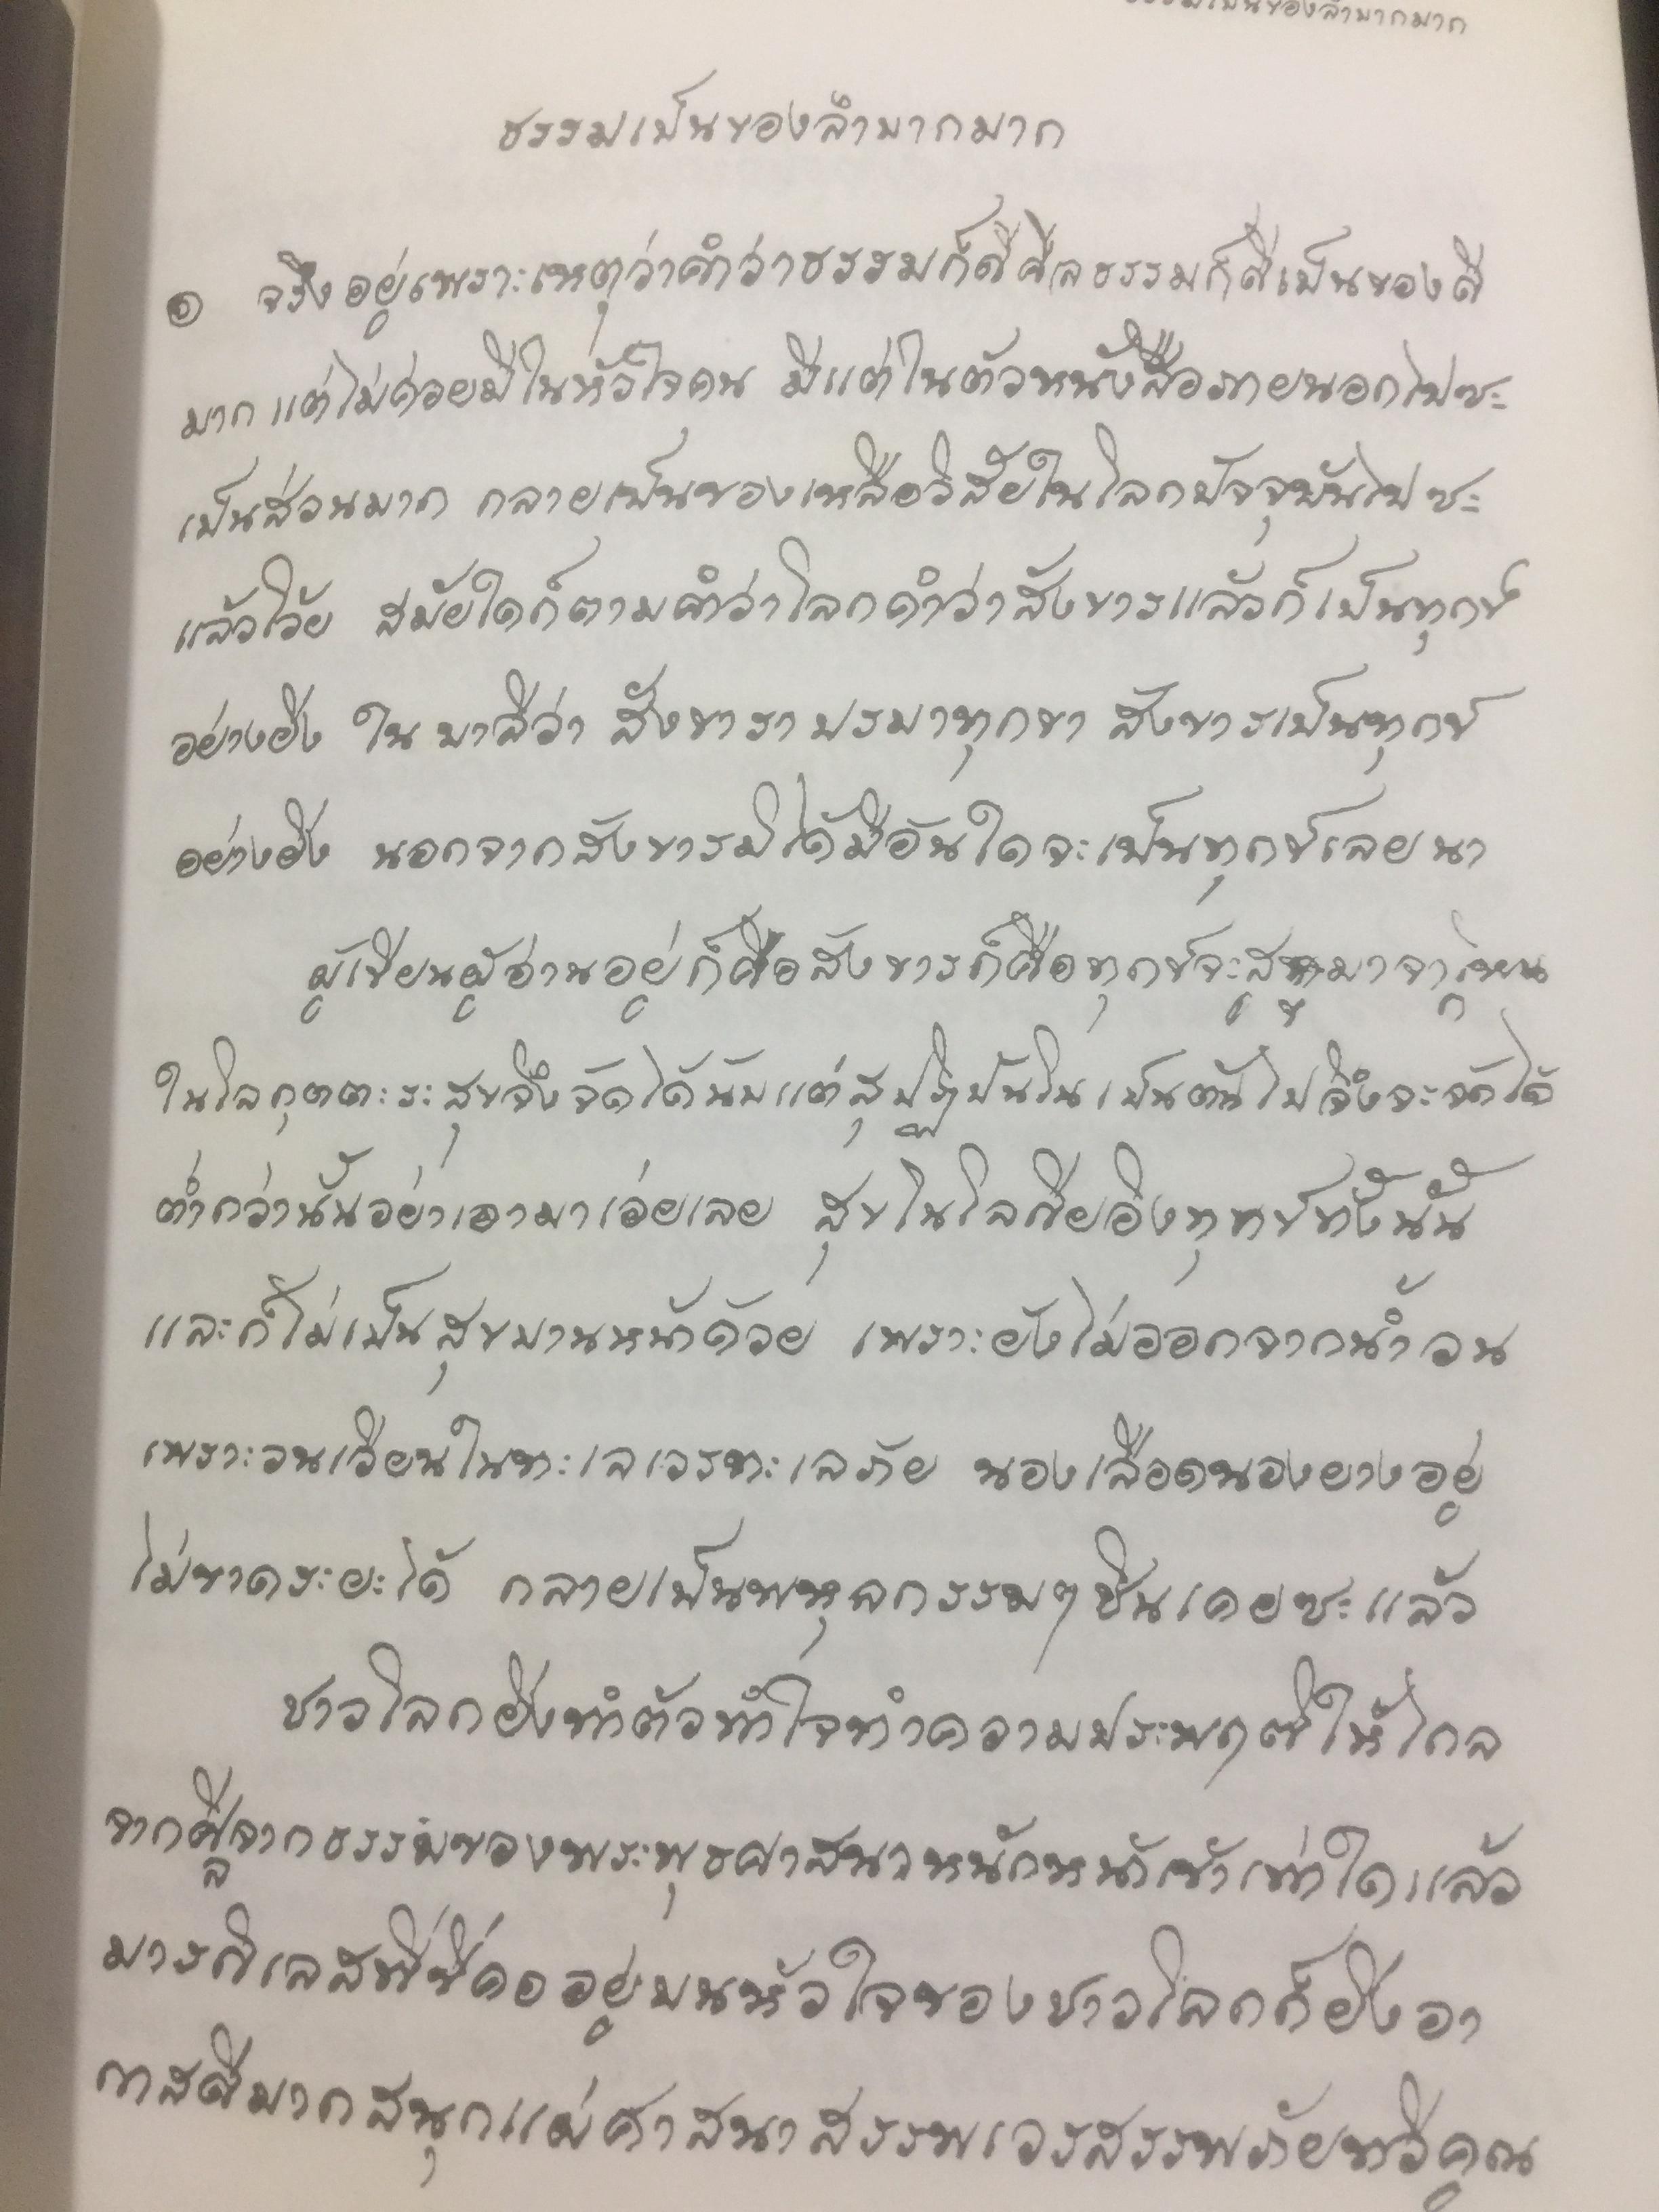 ธรรมเป็นของลำบากมาก
ธรรมเป็นของลำบากมาก
๑ จริงอยู่เพราะเหตุว่าคำว่าธรรมก็ดีศีลธรรมก็ดีเป็นของดี
มาก แต่ไม่ค่อยมีในหัวใจคน มีแต่ในตัวหนังสือภายนอกไปซะ
เป็นส่วนมาก กลายเป็นของเหลือวิสัยในโลกปัจจุบันไปซะ
แล้วโว้ย สมัยใดก็ตามคำว่าโลกคำว่าสังขารแล้วก็เป็นทุกข์
อย่างยิ่ง ในบาลีว่า สังขารา ปรมาทุกขา สังขารเป็นทุกข์
อย่างยิ่ง นอกจากสังขารมิได้มีอันใดจะเป็นทุกข์เลยนา
ผู้เขียนผู้อ่านอยู่ก็คือสังขารก็คือทุกข์จะสุขมาจากไหน
ในโลกุตตะระสุขจึงจัดได้นับแต่สุปฏิปันโนเป็นต้นไปจึงจะจัดได้
ต่ำกว่านั้นอย่าเอามาเอ่ยเลย สุขในโลกียอิงทุกข์ทั้งนั้น
และก็ไม่เป็นสุขบานหน้าด้วย เพราะยังไม่ออกจากน้ำวน
เพราะวนเวียนในทะเลเวรทะเลภัย นองเลือดนองยางอยู่
ไม่ขาดระยะได้ กลายเป็นพหุลกรรมๆชินเคยซะแล้ว
ชาวโลกยิ่งทำตัวทำใจทำความประพฤติให้ไกล
จากศีลจากธรรมของพระพุธศาสนาหนักหน้าเข้าเท่าใดแล้ว
มารกิเลสที่ขี่คออยู่บนหัวใจของชาวโลกก็ยิ่งอา
กาสดีมากสนุกแม่ศาสนาสรรพเวรสรรพภัยทวีคูณ